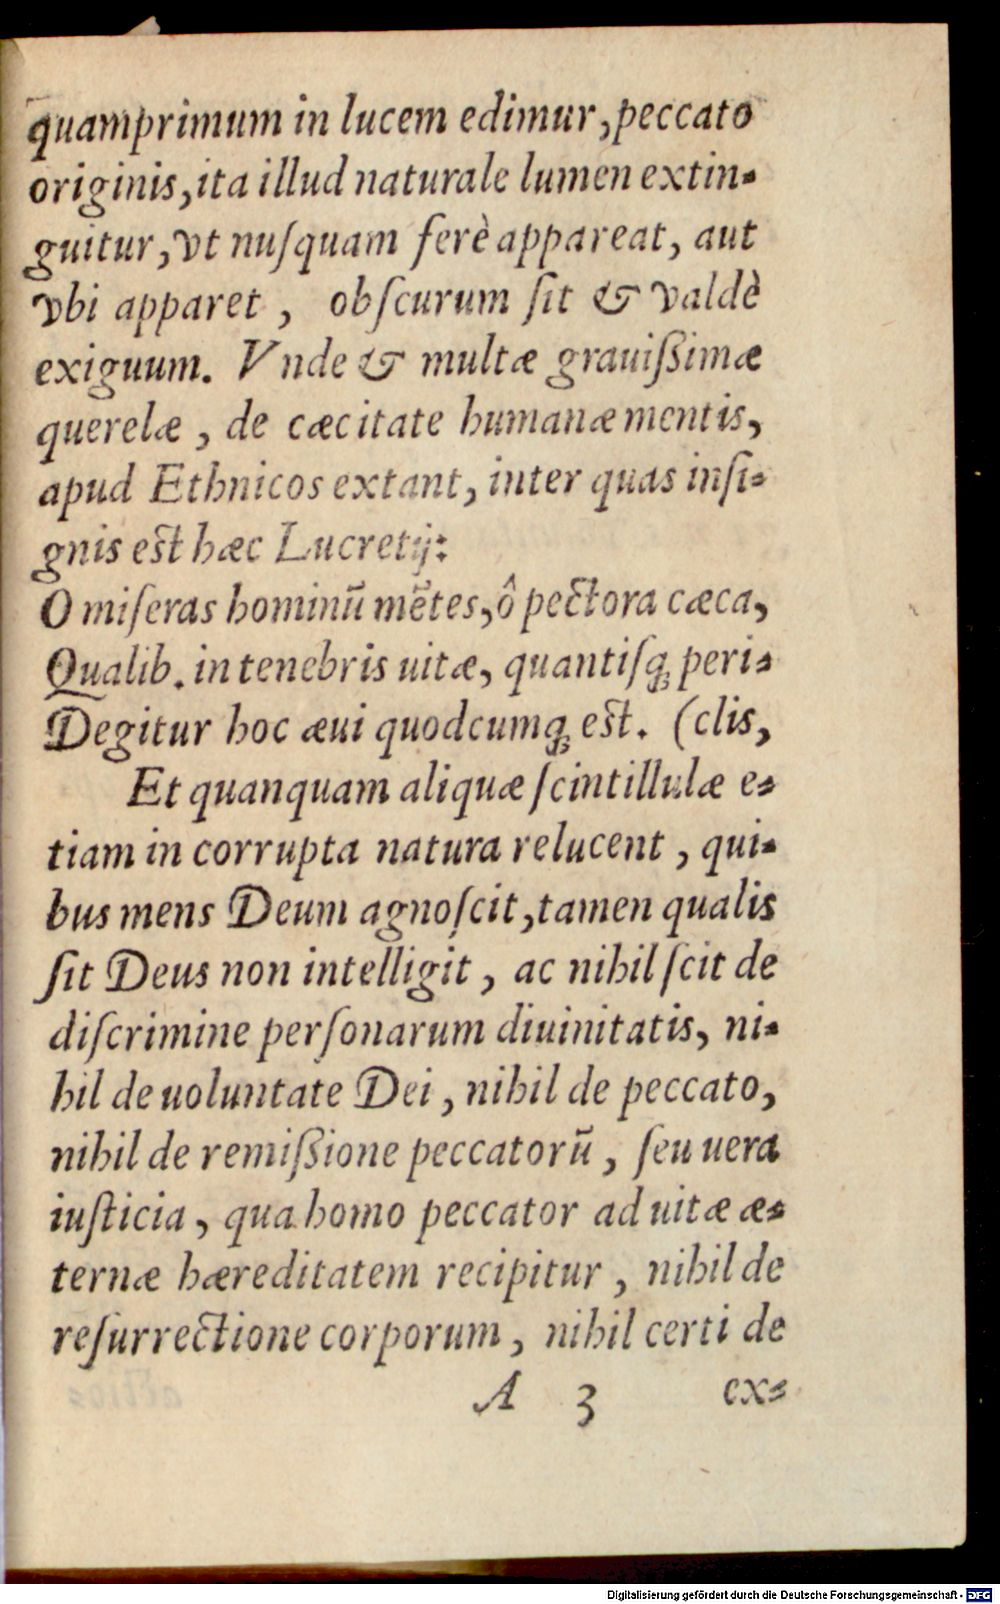 quamprimum in lucem edimur, peccato
originis, ita illud naturale lumen extin-
guitur, vt nuſquam ferè appareat, aut
vbi apparet, obſcurum ſit & valdè
exiguum. Vnde & multæ grauiſsimæ
querelæ, de cæcitate humanæ mentis,
apud Ethnicos extant, inter quas inſi-
gnis est hæc Lucretij:
O miſeras hominū mētes, ô pectora cæca,
Qualib. in tenebris uitæ, quantiſq; peri-
Degitur hoc æui quodcumq; est. (clis,
Et quanquam aliquæ ſcintillulæ e-
tiam in corrupta natura relucent, qui-
bus mens Deum agnoſcit, tamen qualis
ſit Deus non intelligit, ac nihil ſcit de
diſcrimine perſonarum diuinitatis, ni-
hil de uoluntate Dei, nihil de peccato,
nihil de remiſsione peccatorū, ſeu uera
iuſticia, qua homo peccator ad uitæ æ-
ternæ hæreditatem recipitur, nihil de
reſurrectione corporum, nihil certi de
A 3 ex-
Digitalisierung gefördert durch die Deutsche Forschungsgemeinschaft - DFG